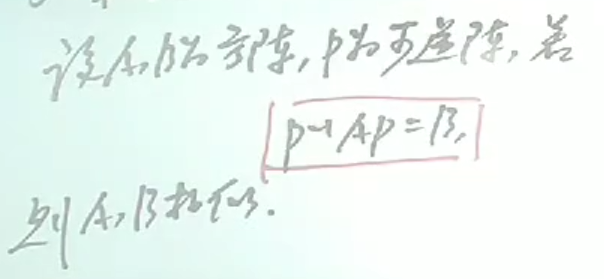 设A,B为方阵,P为可逆阵,若
P⁻¹AP=B,
则A,B相似.